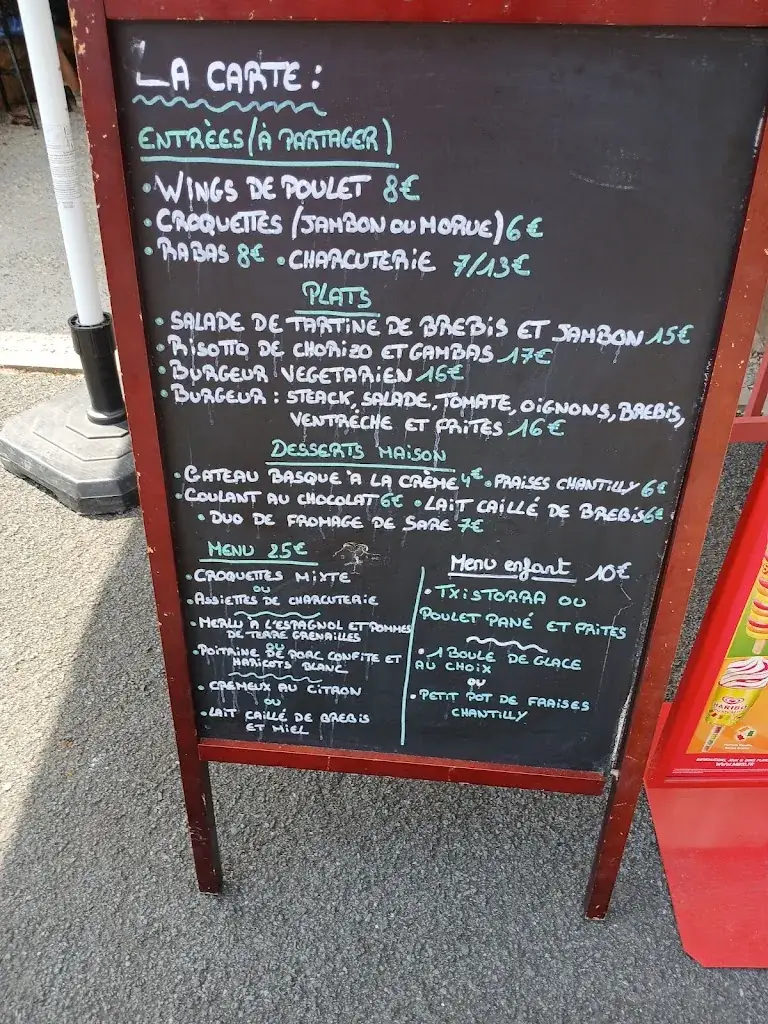 LA CARTE :
ENTRÈES (À PARTAGER)
• WINGS DE POULET 8€
• CROQUETTES (JAMBON OU MORUE) 6€
• RABAS 8€ • CHARCUTERIE 7/13€
PLATS
• SALADE DE TARTINE DE BREBIS ET JAMBON 15€
• RISOTTO DE CHORIZO ET GAMBAS 17€
• BURGEUR VEGETARIEN 16€
• BURGEUR : STEACK, SALADE, TOMATE, OIGNONS, BREBIS,
VENTRÈCHE ET FRITES 16€
DESSERTS MAISON
• GATEAU BASQUE À LA CRÈME 4€ • FRAISES CHANTILLY 6€
• COULANT AU CHOCOLAT 6€ • LAIT CAILLÉ DE BREBIS 6€
• DUO DE FROMAGE DE SARE 7€
MENU 25€
• CROQUETTES MIXTE
OU
• ASSIETTES DE CHARCUTERIE
• MERLU A L'ESPAGNOL ET POMMES
DE TERRE GRENAILLES
OU
• POITRINE DE PORC CONFITE ET
HARICOTS BLANC
• CRÈMEUX AU CITRON
OU
• LAIT CAILLÉ DE BREBIS
ET MIEL
Menu enfant 10€
• TXISTORRA OU
POULET PANÉ ET FRITES
• 1 BOULE DE GLACE
AU CHOIX
OU
• PETIT POT DE FRAISES
CHANTILLY
HARIBO